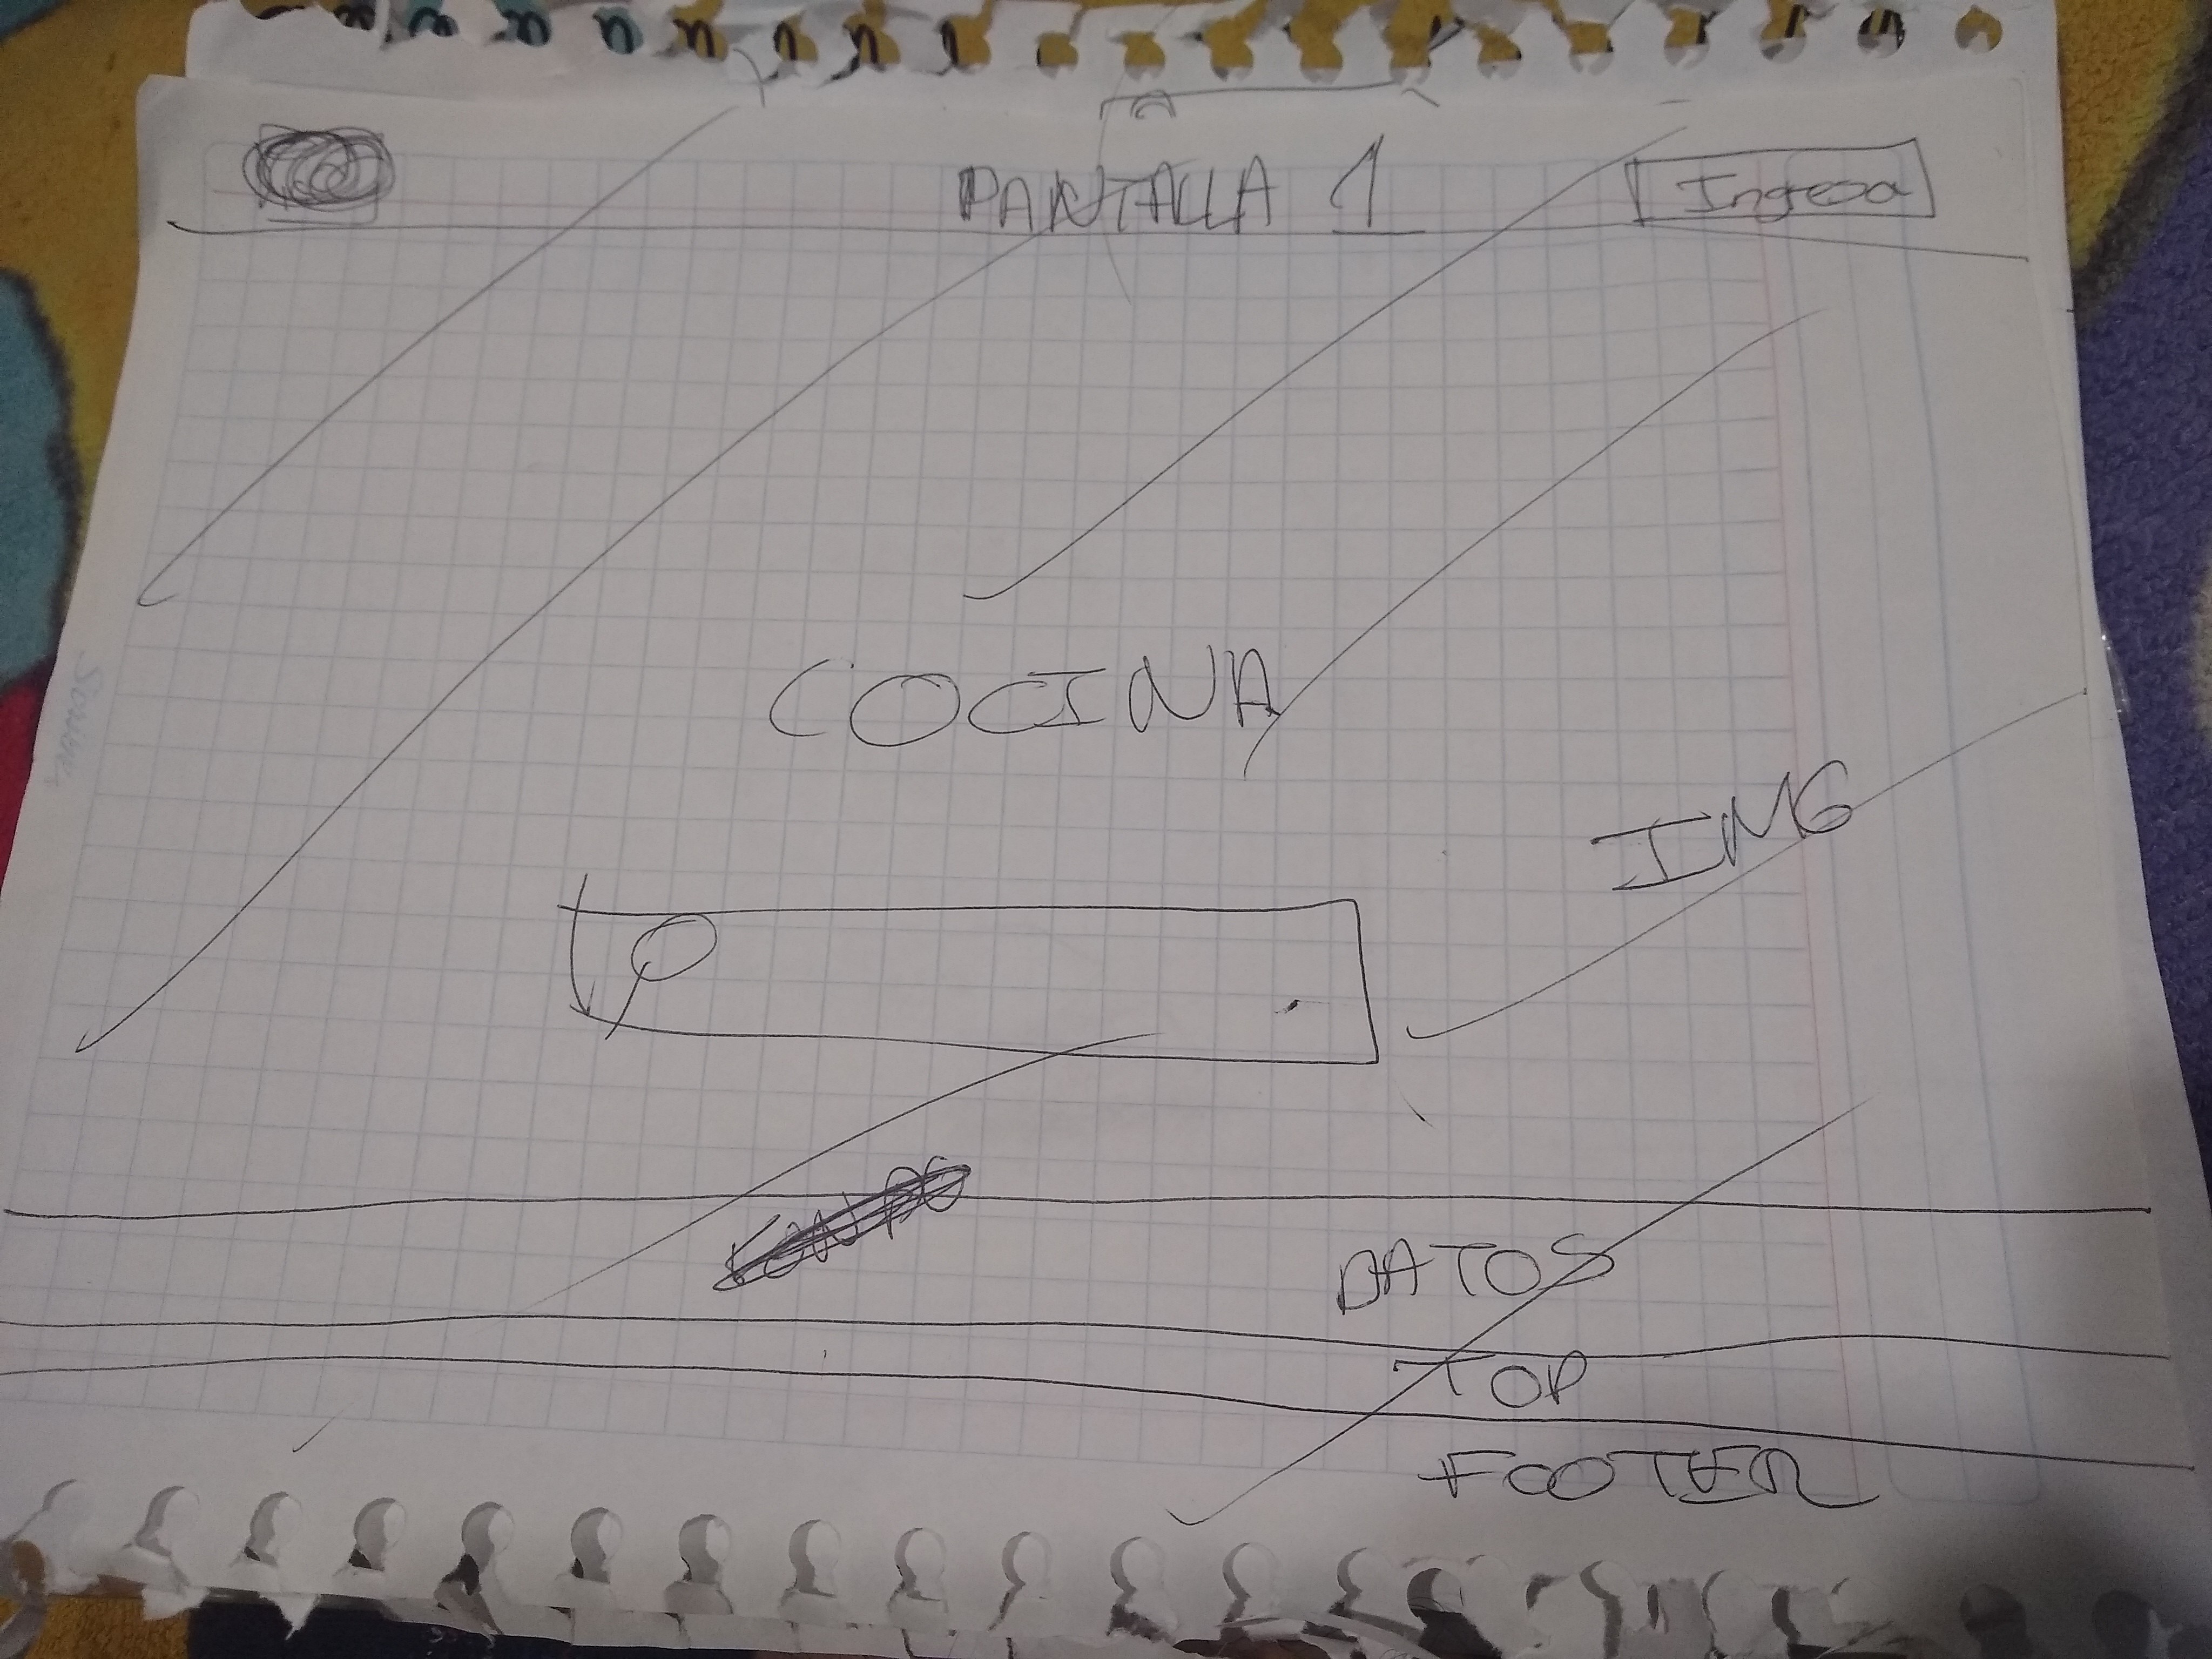 PANTALLA 1
Ingresa
COCINA
IMG
DATOS
TOP
FOOTER